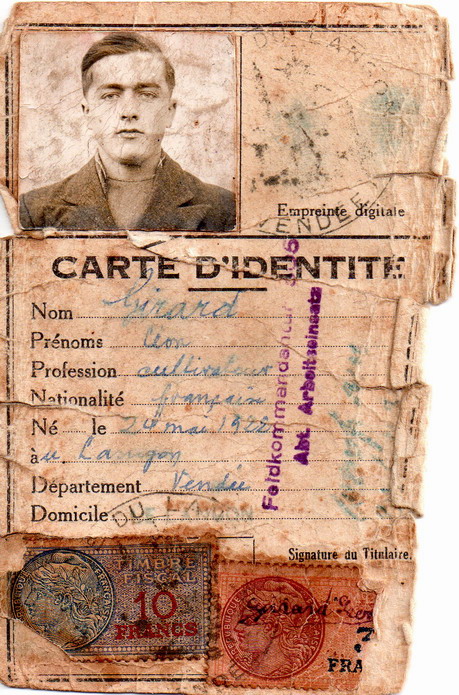 DU LANGON
VENDÉE
Empreinte digitale
CARTE D'IDENTITÉ
Nom Girard
Prénoms Léon
Profession cultivateur
Nationalité française
Né le 24 mai 1922
à u Langon
Département Vendée
Domicile
DU LANGON
Feldkommandantur
Abt. Arbeitseinsatz
Signature du Titulaire.
TIMBRE
FISCAL
10
FRANCS
Girard Léon
7
FRA